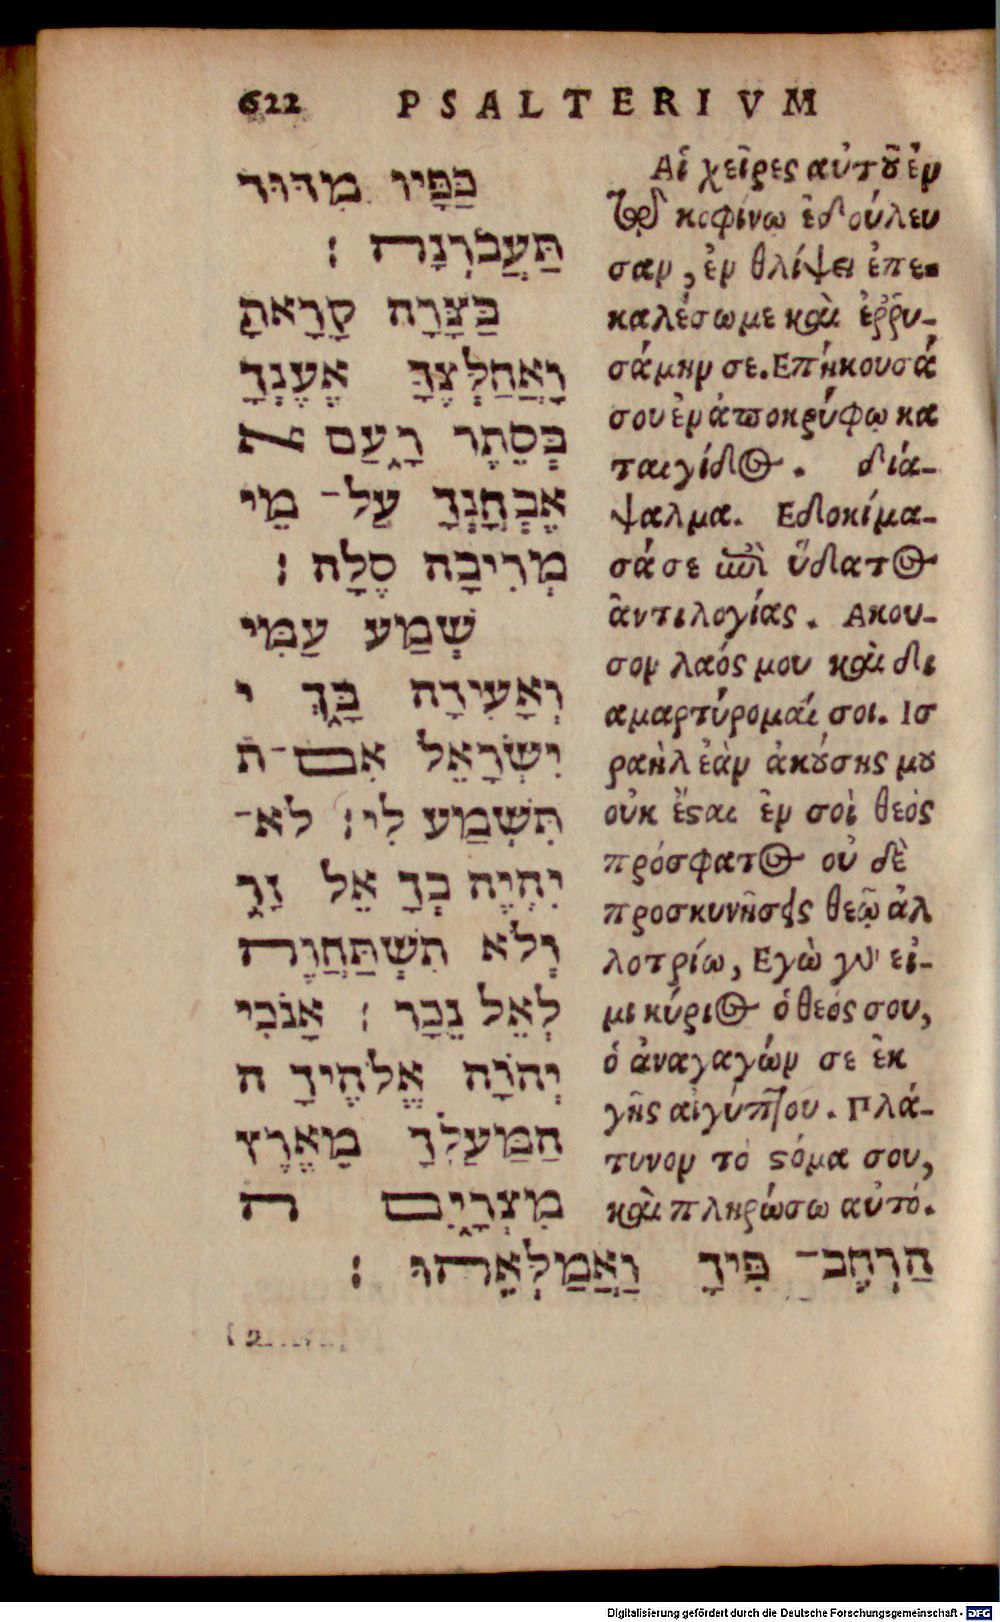 622 PSALTERIVM
כַּפָּיו מִדּוּד
תַּעֲבֹרְנָה ׃
בַּצָּרָה קָרָאתָ
וָאֲחַלְּצֶךָּ אֶעֶנְךָ
בְּסֵתֶר רָעַם א
אֶבְחָנְךָ עַל־ מֵי
מְרִיבָה סֶלָה ׃
שְׁמַע עַמִּי
וְאָעִידָה בָּךְ י
יִשְׂרָאֵל אִם־ת
תִּשְׁמַע לִי׃ לֹא־
יִהְיֶה בְךָ אֵל זָר
וְלֹא תִשְׁתַּחֲוֶה
לְאֵל נֵכָר ׃ אָנֹכִי
יְהוָֹה אֱלֹהֶיךָ ה
הַמַּעַלְךָ מֵאֶרֶץ
מִצְרָיִם ה
הַרְחֶב־ פִּיךָ וַאֲמַלְאֵהוּ ׃
Αἱ χεῖρες αὐτοῦ ἐν
τῷ κοφίνω ἐδούλευ
σαν, ἐν θλίψει ἐπε-
καλέσωμε καὶ ἐῤῥυ-
σάμην σε. Επήκουσά
σου ἐν ἀποκρύφῳ κα
ταιγίδος. διά-
ψαλμα. Εδοκίμα-
σάσε ἐπὶ ὕδατος
ἀντιλογίας. Ακου-
σον λαός μου καὶ δι
αμαρτύρομαί σοι. Ισ
ραὴλ ἐὰν ἀκούσης μου
οὐκ ἔσαι ἐν σοὶ θεὸς
πρόσφατος οὐ δὲ
προσκυνήσεις θεῷ ἀλ
λοτρίω, Εγὼ γάρ εἰ-
μι κύριος ὁ θεός σου,
ὁ ἀναγαγών σε ἐκ
γῆς αἰγύπτου. Πλά-
τυνον τὸ στόμα σου,
καὶ πληρώσω αὐτό.